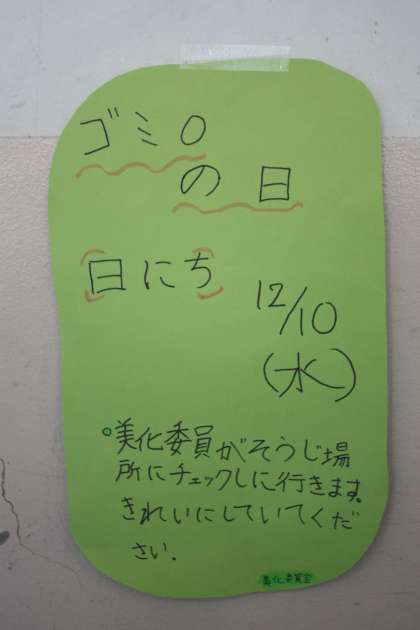 ゴミ0
の日
日にち
12/10
(水)
美化委員がそうじ場
所にチェックしに行きます。
きれいにしていてくだ
さい.
美化委員会